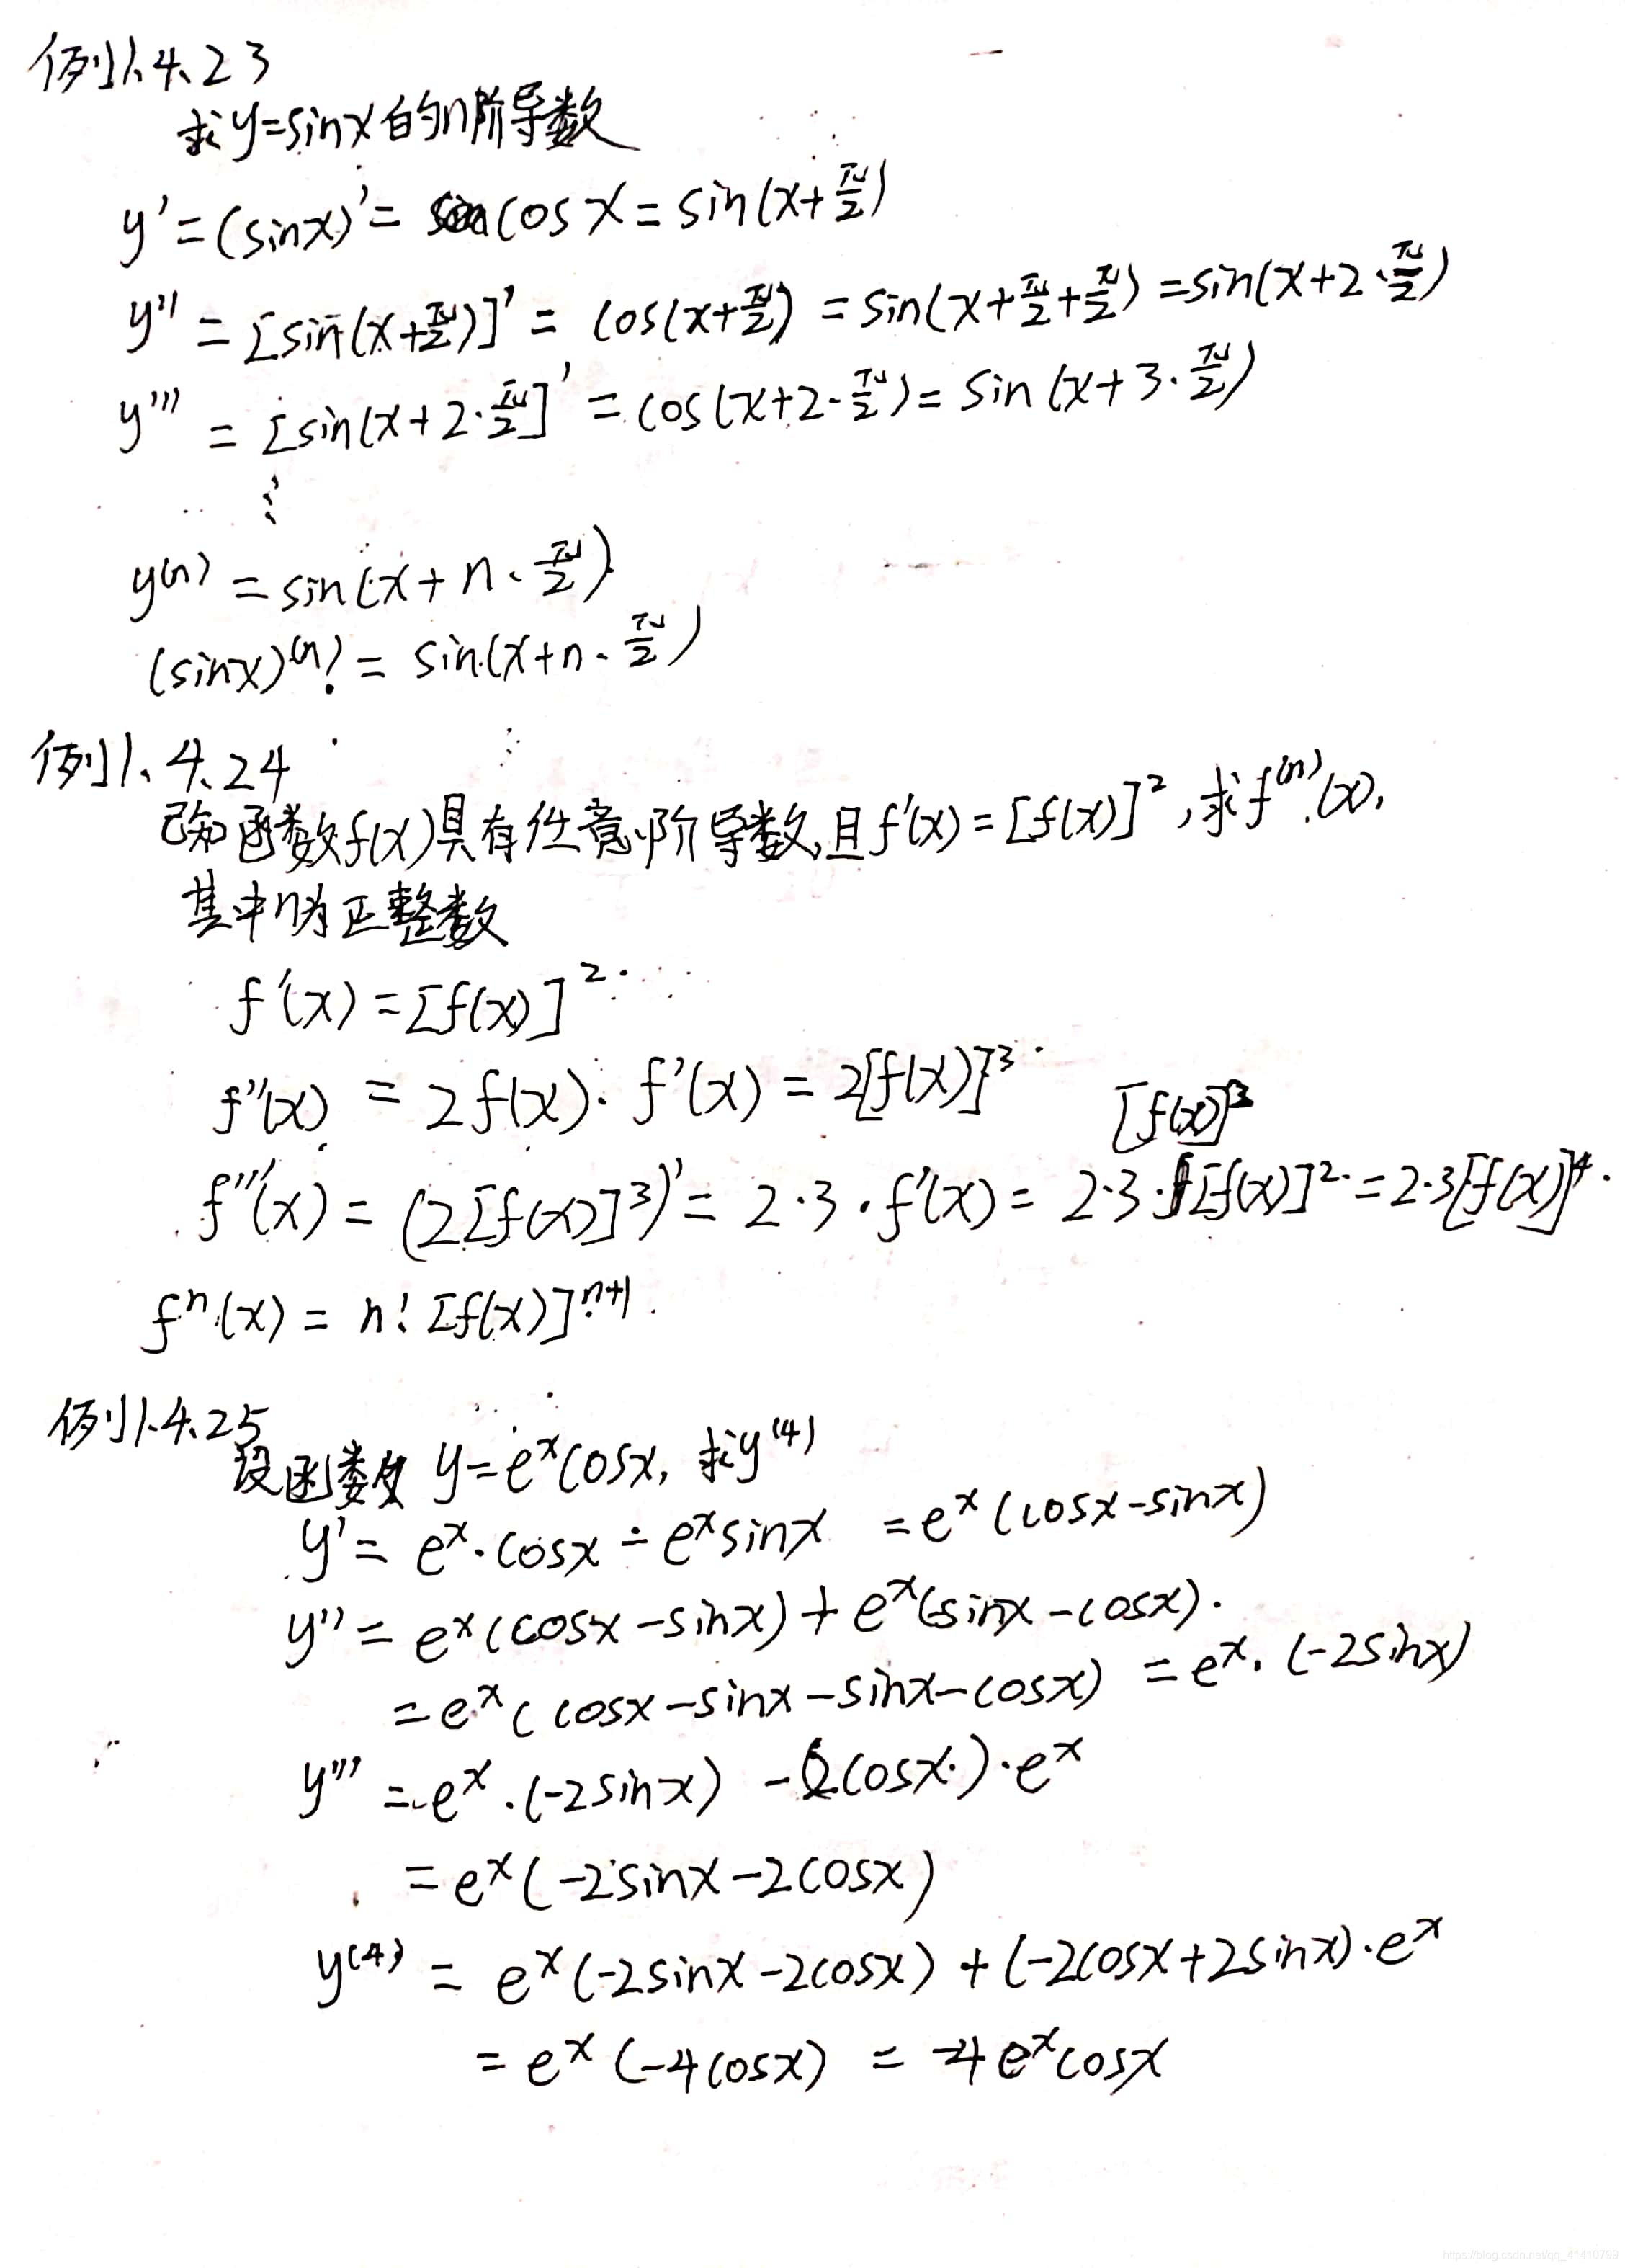 例1.4.23
求y=sinx的n阶导数
y'=(sinx)'= cosx=sin(x+π/2)
y''=[sin(x+π/2)]'=cos(x+π/2)=sin(x+π/2+π/2)=sin(x+2·π/2)
y'''=[sin(x+2·π/2]'=cos(x+2·π/2)=sin(x+3·π/2)
⋮
y(n)=sin(x+n·π/2)
(sinx)(n)=sin(x+n·π/2)
例1.4.24
已知函数f(x)具有任意阶导数,且f'(x)=[f(x)]²,求f(n)(x),
其中n为正整数
f'(x)=[f(x)]²
f''(x)=2f(x)·f'(x)=2[f(x)]³
[f(x)]³
f'''(x)=(2[f(x)]³)'=2·3·f'(x)=2·3·[f(x)]²=2·3[f(x)]⁴
fⁿ(x)=n![f(x)]ⁿ⁺¹
例1.4.25
设函数y=eˣcosx,求y(4)
y'=eˣ·cosx-eˣsinx=eˣ(cosx-sinx)
y''=eˣ(cosx-sinx)+eˣ(-sinx-cosx)
=eˣ(cosx-sinx-sinx-cosx)=eˣ·(-2sinx)
y'''=eˣ·(-2sinx)-2cosx)·eˣ
=eˣ(-2sinx-2cosx)
y(4)=eˣ(-2sinx-2cosx)+(-2cosx+2sinx)·eˣ
=eˣ(-4cosx)=-4eˣcosx
https://blog.csdn.net/qq_41410799